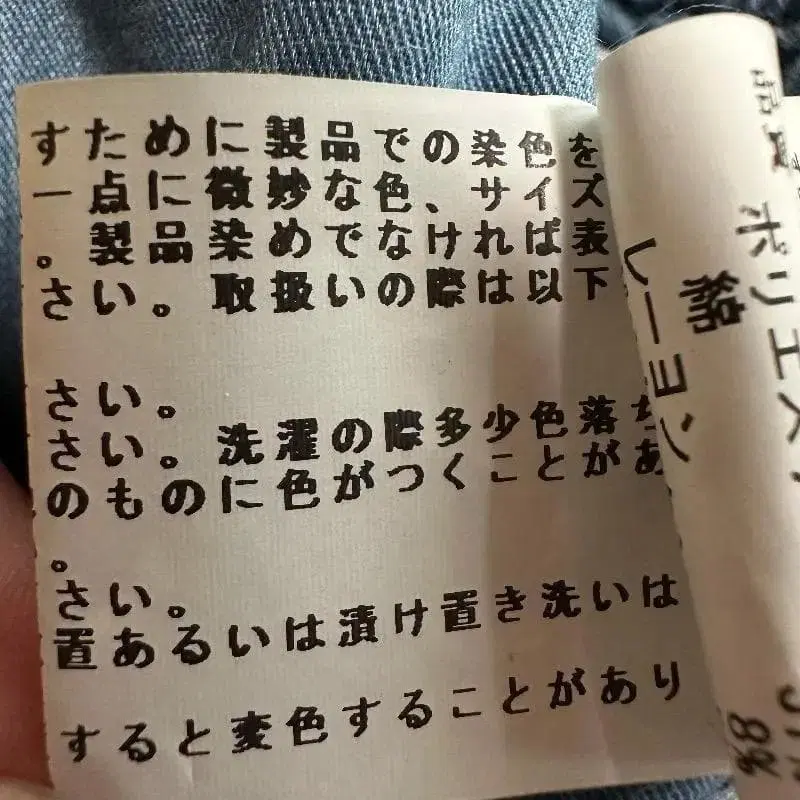 すために製品での染色を
一点に微妙な色、サイズ
。製品染めでなければ表
さい。取扱いの際は以下
さい。
さい。洗濯の際多少色落ち
のものに色がつくことがあ
。
さい。
置あるいは漬け置き洗いは
すると変色することがあり
ポリエス
綿
レーヨン
8%